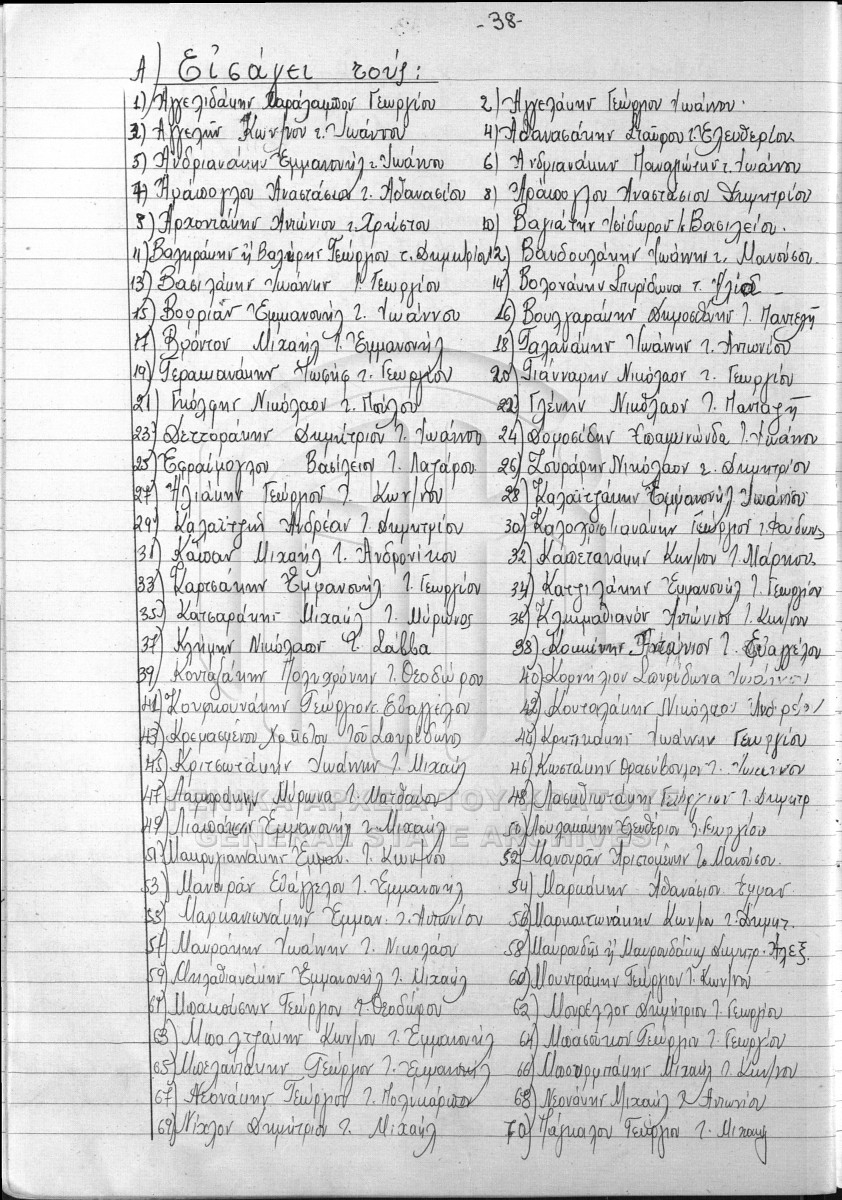 -38-
Α) Εἰσάγει τούς:
1) Ἀγγελιδάκην Χαράλαμπον Γεωργίου 2) Ἀγγελάκην Γεώργιον Ἰωάννου.
3) Ἀγγελῆν Κων/νον τ. Ἰωάννου 4) Ἀθανασάκην Σταῦρον τ. Ἐλευθερίου
5) Ἀνδριανάκην Ἐμμανουήλ τ. Ἰωάννου 6) Ἀνδριανάκην Παναγιώτην τ. Ἰωάννου
7) Ἀράπογλου Ἀναστάσιον τ. Ἀθανασίου 8) Ἀράπογλου Ἀναστάσιον Δημητρίου
9) Ἀρχοντάκην Ἀντώνιον τ. Χρήστου 10) Βαγιάτην Ἰσίδωρον Βασιλείου.
11) Βαληράκην ἤ Βαλήρην Γεώργιον τ. Δημητρίου 12) Βανδουλάκην Ἰωάννην τ. Μανούσου
13) Βασιλάκην Ἰωάννην Γ. Γεωργίου 14) Βολονάκην Σπυρίδωνα τ. Ἠλία
15) Βορριᾶν Ἐμμανουήλ τ. Ἰωάννου 16) Βουλγαράκην Δημοσθένην Τ. Παντελῆ
17) Βρόντον Μιχαήλ Τ. Ἐμμανουήλ 18) Γαλανάκην Ἰωάννην τ. Ἀντωνίου
19) Γεραπανάκην Ἰωσήφ τ. Γεωργίου 20) Γιάνναρην Νικόλαον τ. Γεωργίου
21) Γκιόλφην Νικόλαον τ. Παύλου 22) Γλένην Νικόλαον Τ. Πανταζῆ
23) Δετοράκην Δημήτριον Τ. Ἰωάννου 24) Δομοσίδην Ἐπαμεινώνδα Τ. Ἰωάννου
25) Ἐφραίμογλου Βασίλειον Τ. Λαζάρου 26) Ζουράρην Νικόλαον τ. Δημητρίου
27) Ἠλιάκην Γεώργιον Τ. Κων/νου 28) Καλαϊτζάκην Ἐμμανουήλ Ἰωάννου
29) Καλαϊτζῆν Ἀνδρέαν Τ. Δημητρίου 30) Καλοχριστιανάκην Γεώργιον τ.
31) Κάππαν Μιχαήλ Τ. Ἀνδρονίκου 32) Καπετανάκην Κων/νον Τ. Μάρκου
33) Καρτσάκην Ἐμμανουήλ Τ. Γεωργίου 34) Κατζιλάκην Ἐμμανουήλ Τ. Γεωργίου
35) Κατσαράκην Μιχαήλ Τ. Μύρωνος 36) Κλημαθιανόν Ἀντώνιον Τ. Κων/νου
37) Κλήμην Νικόλαον Τ. Σάββα 38) Κοκκίνην Ἀντώνιον Τ. Εὐαγγέλου
39) Κονταξάκην Πολυχρόνην Τ. Θεοδώρου 40) Κορνήλιον Σπυρίδωνα Ἰωάννου
41) Κουφκουνάκην Γεώργιον τ. Εὐαγγέλου 42) Κουταλάκην Νικόλαον Ἀνδρέου
43) Κρεμασμένον Χρῆστον τοῦ Σπυρίδωνος 44) Κρητικάκην Ἰωάννην Γεωργίου
45) Κριτσωτάκην Ἰωάννην Τ. Μιχαήλ 46) Κωστάκην Θρασύβουλον Τ. Ἰωάννου
47) Λαμπράκην Μύρωνα Τ. Ματθαίου 48) Λασηθιωτάκην Γεώργιον Τ. Δημητρ
49) Ἐμμανουήλ τ. Μιχαήλ 50) Λουλακάκην Ἐλευθέριον Τ. Γεωργίου
51) Μακρυγιαννάκην Ἐμμαν. Τ. Κων/νου 52) Μανουρᾶν Ἀριστομένην Τ. Μανούσου.
53) Μανουρᾶν Εὐάγγελον Τ. Ἐμμανουήλ 54) Μαρκάκην Ἀθανάσιον Ἐμμαν.
55) Μαρκαντωνάκην Ἐμμαν. Τ. Ἀντωνίου 56) Μαρκαντωνάκην Κων/νον τ. Δημητ.
57) Μαυράκην Ἰωάννην Τ. Νικολάου 58) Μαυρουδῆς ἤ Μαυρουδάκης Δημητρ. Ἀλεξ.
59) Μηλαθιανάκην Ἐμμανουήλ Τ. Μιχαήλ 60) Μουντράκην Γεώργιον Τ. Κων/νου
61) Μπακούσην Γεώργιον τ. Θεοδώρου 62) Μουρέλλον Δημήτριον Τ. Γεωργίου
63) Μπαλτζάκην Κων/νον τ. Ἐμμανουήλ 64) Μπασούκον Γεώργιον Τ. Γεωργίου
65) Μπελαντάκην Γεώργιον Τ. Ἐμμανουήλ 66) Μπουρμπάκην Μιχαήλ Τ. Κων/νου
67) Νεονάκην Γεώργιον Τ. Πολυκάρπου 68) Νεονάκην Μιχαήλ τ. Ἀντωνίου
69) Νίχλον Δημήτριον τ. Μιχαήλ 70) Πάγκαλον Γεώργιον τ. Μιχαήλ
ΓΕΝΙΚΑ ΑΡΧΕΙΑ ΤΟΥ ΚΡΑΤΟΥΣ
GENERAL STATE ARCHIVES